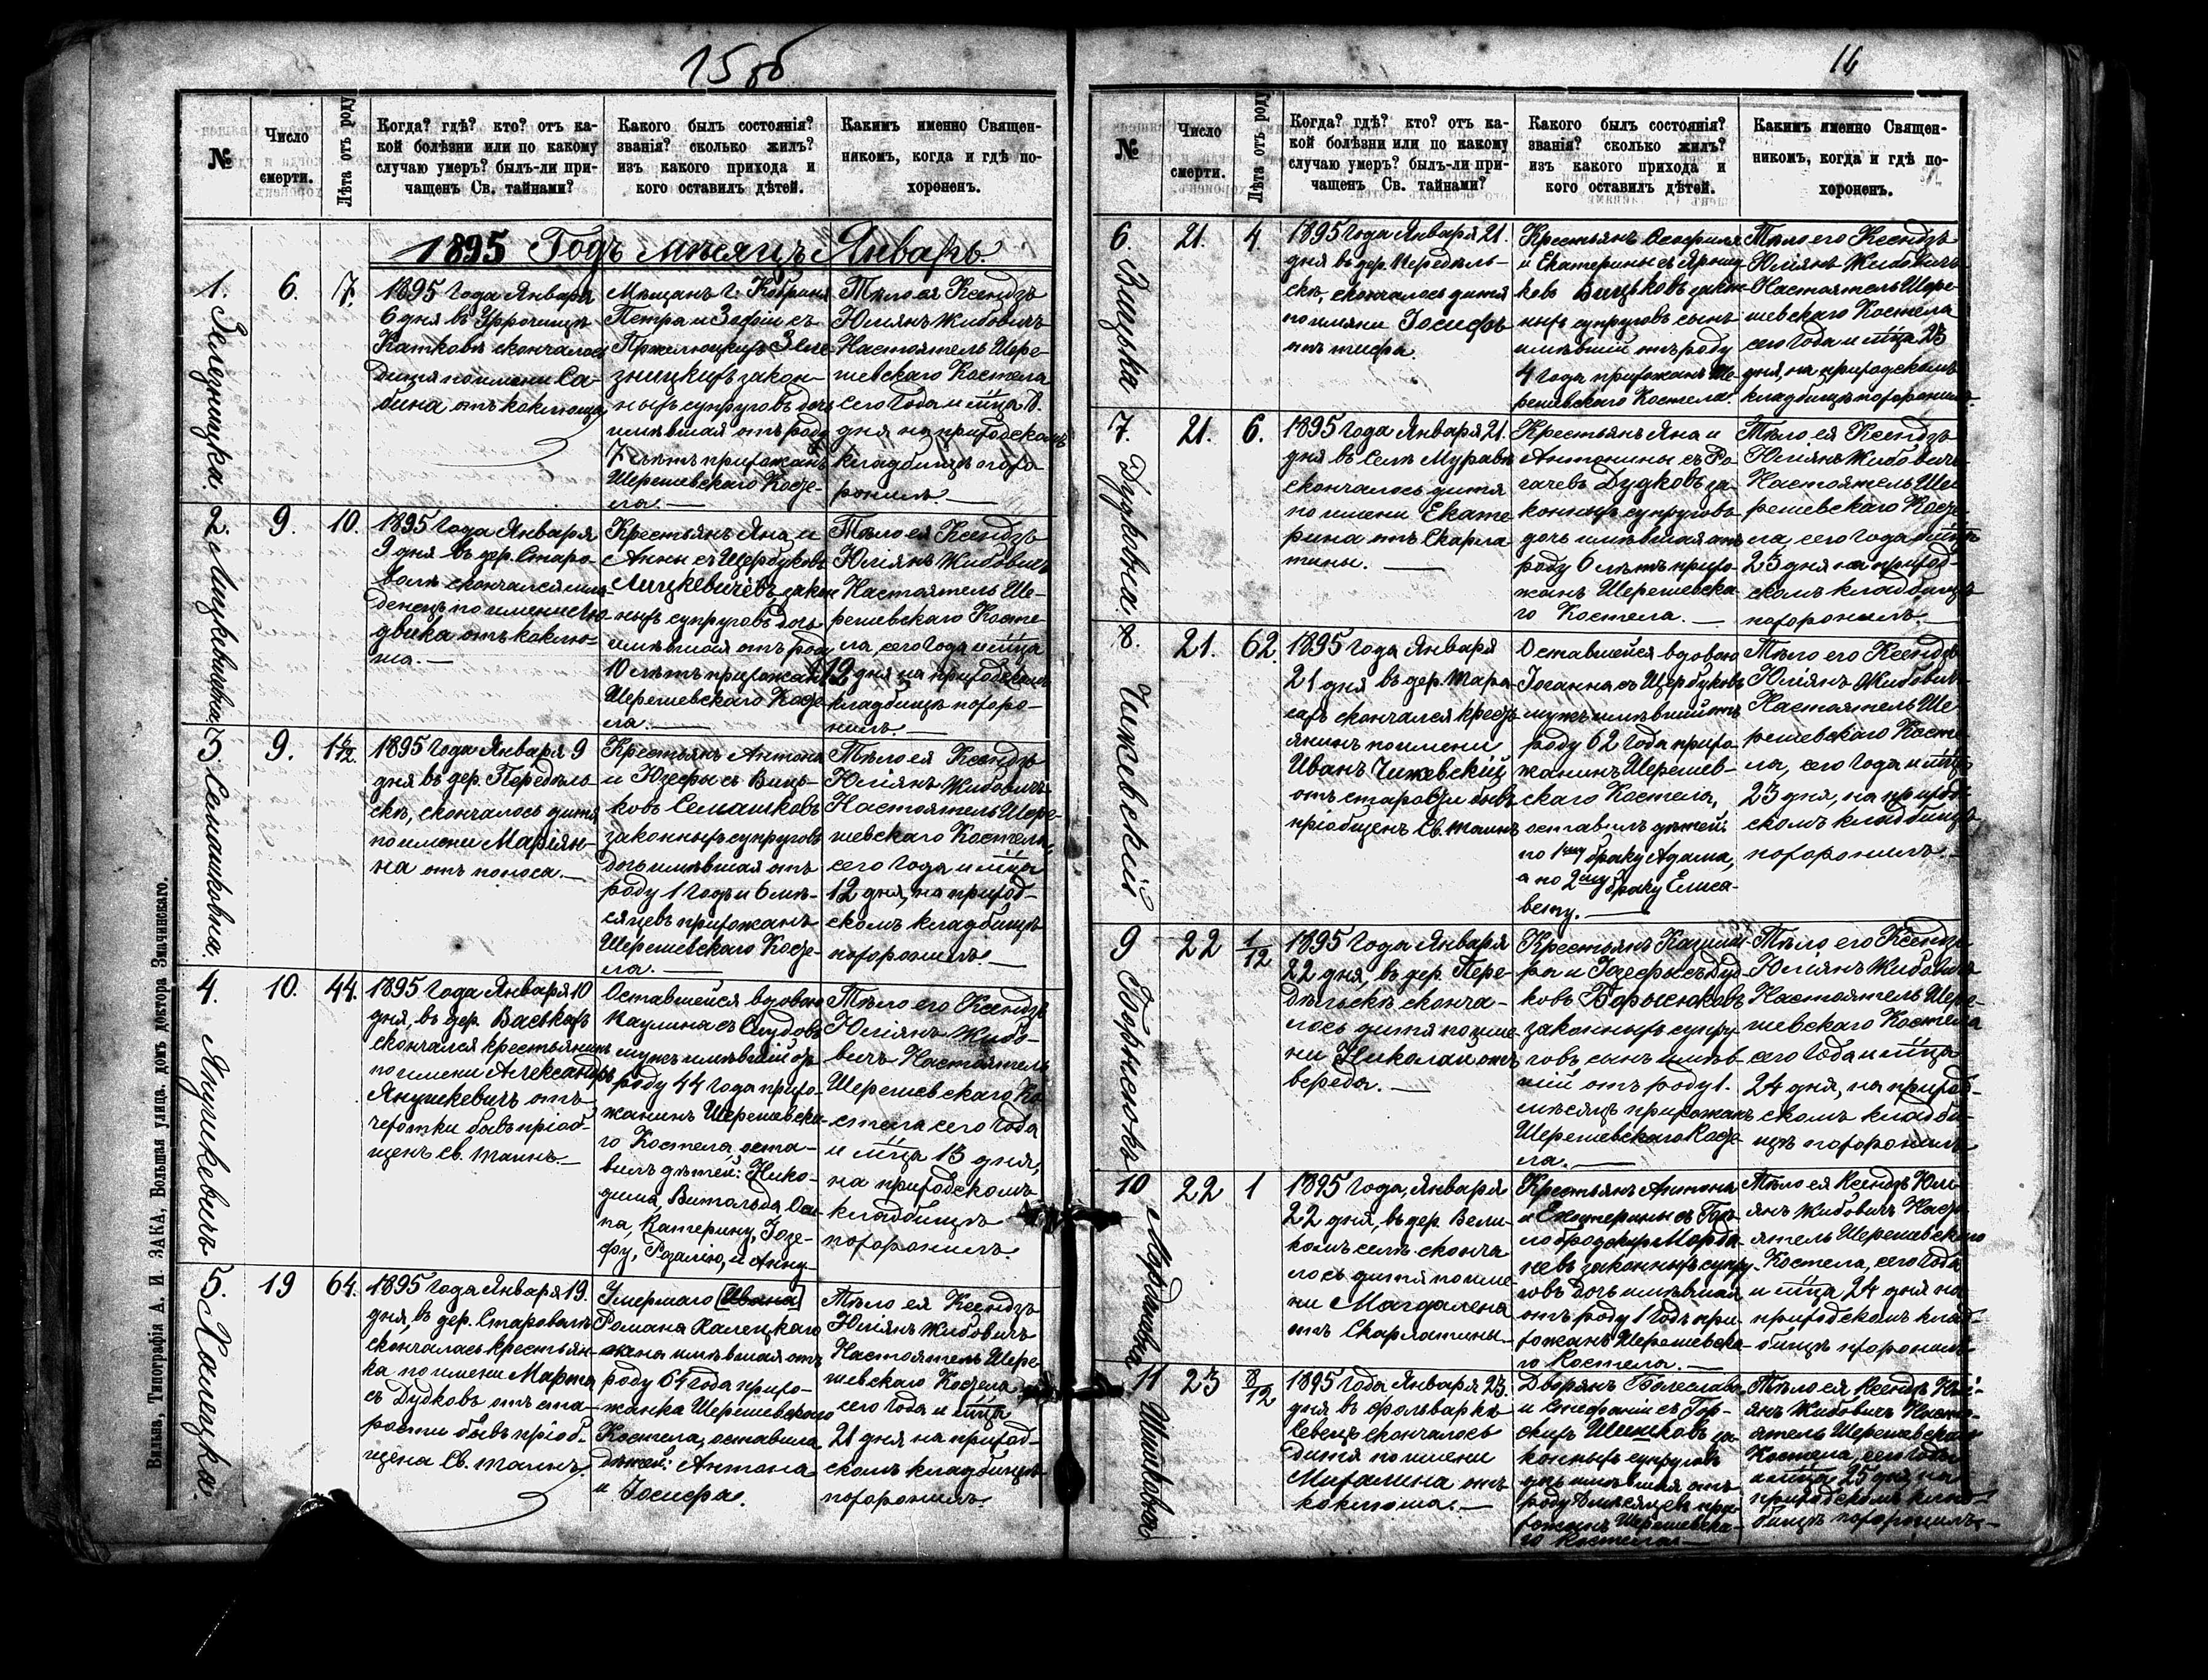 15 об
№
Число
смерти.
Лѣта отъ роду
Когда? гдѣ? кто? отъ ка-
кой болѣзни или по какому
случаю умеръ? былъ-ли при-
чащенъ Св. тайнами?
Какого былъ состоянія?
званія? сколько жилъ?
изъ какого прихода и
кого оставилъ дѣтей.
Какимъ именно Священ-
никомъ, когда и гдѣ по-
хороненъ.
1895 Годъ мѣсяцъ Январь.
1. Зелезницка.
6.
7.
1895 Года Января
6 дня въ
скончалось
дитя по имени Са-
бина отъ коклюша
Мѣщанъ Г. Кобрина
Петра и Зофіи съ
Зеле-
зницкихъ закон-
ныхъ супруговъ дочь
имѣвшая отъ роду
7 лѣтъ прихожанъ
Шерешевскаго Косте-
ла.
Тѣло ея Ксендзъ
Юліянъ Жибовичъ
Настоятель Шере-
шевскаго Костела
сего Года и м҃ца 8.
дня на приходскомъ
кладбищѣ похо-
ронилъ
2. Лицкевичовна
9.
10.
1895 Года Января
9 дня въ дер. Старо-
волѣ скончался мла-
денецъ по имени Лю-
двика отъ коклю-
ша.
Крестьянъ Яна и
Анны съ Щербуковъ
Лицкевичевъ закон-
ныхъ супруговъ дочь
имѣвшая отъ роду
10 лѣтъ прихожанъ
Шерешевскаго Косте-
ла.
Тѣло ея Ксендзъ
Юліянъ Жибовичъ
Настоятель Ше-
решевскаго Косте-
ла, сего Года и м҃ца
12 дня на приходскомъ
кладбищѣ похоро-
нилъ
3. Семашковна.
9.
1 6/12.
1895 Года Января 9
дня въ дер. Передѣль-
скѣ, скончалось дитя
по имени Маріян-
на отъ поноса.
Крестьянъ Антона
и Юзефы съ Виць-
ковъ Семашковъ
законныхъ супруговъ
дочь имѣвшая отъ
роду 1 годъ и 6 мѣ-
сяцевъ прихожанъ
Шерешевскаго Косте-
ла.
Тѣло ея Ксендзъ
Юліянъ Жибовичъ
Настоятель Шере-
шевскаго Костела,
сего Года и м҃ца
12 дня, на приход-
скомъ кладбищѣ
похоронилъ.
4. Янушкевичъ
10.
44.
1895 Года Января 10
дня, въ дер. Васькахъ
скончался крестьянинъ
по имени Александръ
Янушкевичъ отъ
чехотки бывъ пріоб-
щенъ Св. таинъ.
Оставшейся вдовою
Паулина съ
мужъ имѣвшій отъ
роду 44 года прихо-
жанинъ Шерешевска-
го Костела, оста-
вилъ дѣтей: Нико-
дима, Витольда, Оси-
па, Катерину, Юзе-
фу, Розалію, и Анну
Тѣло его Ксендзъ
Юліянъ Жибо-
вичъ Настоятель
Шерешевскаго Ко-
стела сего Года
и м҃ца 13 дня,
на приходскомъ
кладбищѣ
похоронилъ.
5. Халецка.
19
64.
1895 Года Января 19.
дня, въ дер. Староволѣ
скончалась крестьян-
ка по имени Марта
съ Дудковъ отъ ста-
рости бывъ пріоб-
щена Св. таинъ.
Умершаго [Ивана]
Романа Халецкаго
жена имѣвшая отъ
роду 64 года прихо-
жанка Шерешевскаго
Костела, оставила
дѣтей: Антона
и Іосифа.
Тѣло ея Ксендзъ
Юліянъ Жибовичъ
Настоятель Шере-
шевскаго Костела
сего Года и м҃ца
21 дня на приход-
скомъ кладбищѣ
похоронилъ
Вильна, Типографія А. И. ЗАКА, Большая улица. домъ доктора Змачинскаго.
16
№
Число
смерти.
Лѣта отъ роду
Когда? гдѣ? кто? отъ ка-
кой болѣзни или по какому
случаю умеръ? былъ-ли при-
чащенъ Св. тайнами?
Какого былъ состоянія?
званія? сколько жилъ?
изъ какого прихода и
кого оставилъ дѣтей.
Какимъ именно Священ-
никомъ, когда и гдѣ по-
хороненъ.
6. Вицька
21.
4.
1895 Года Января 21.
дня въ дер. Передѣль-
скѣ, скончалось дитя
по имяни Іосифъ
отъ тифа.
Крестьянъ
и Екатерины съ
Вицьковъ закон-
ныхъ супруговъ сынъ
имѣвшій отъ роду
4 года прихожанъ Ше-
решевскаго Костела.
Тѣло его Ксендзъ
Юліянъ Жибовичъ
Настоятель Шере-
шевскаго Костела
сего Года и м҃ца 23
дня, на приходскомъ
кладбищѣ похоронилъ.
7. Дудковна.
21.
6.
1895 Года Января 21.
дня въ Селѣ Муравѣ
скончалось дитя
по имени Екате-
рина отъ Скарла-
тины.
Крестьянъ Яна и
Антонины съ Ро-
гачевъ Дудковъ за-
конныхъ супруговъ
дочь имѣвшая отъ
роду 6 лѣтъ прихо-
жанъ Шерешевска-
го Костела.
Тѣло ея Ксендзъ
Юліянъ Жибовичъ
Настоятель Ше-
решевскаго Косте-
ла, сего Года и м҃ца
23 дня на приход-
скомъ кладбищѣ
похоронилъ.
8. Чижевскій
21.
62.
1895 Года Января
21 дня въ дер.
скончался кресть-
янинъ по имени
Иванъ Чижевскій
отъ старости бывъ
пріобщенъ Св. таинъ
Оставшейся вдовою
Іоганна съ Щербуковъ
мужъ имѣвшій отъ
роду 62 Года прихо-
жанинъ Шерешев-
скаго Костела,
оставилъ дѣтей:
по 1му браку Адама,
а по 2му браку Елиса-
вету.
Тѣло его Ксендзъ
Юліянъ Жибовичъ
Настоятель Ше-
решевскаго Косте-
ла, сего Года и м҃ца
23 дня, на приход-
скомъ кладбищѣ
похоронилъ.
9 Борисюкъ
22
1/12
1895 Года Января
22 дня, въ дер. Пере-
дѣльскѣ сконча-
лось дитя по име-
ни Николай отъ
вереда.
Крестьянъ Казими-
ра и Юзефы съ Дуд-
ковъ Борисюковъ
законныхъ супру-
говъ сынъ имѣв-
шій отъ роду 1.
мѣсяцъ прихожанъ
Шерешевскаго Косте-
ла.
Тѣло его Ксендзъ
Юліянъ Жибовичъ
Настоятель Шере-
шевскаго Костела
сего Года и м҃ца
24 дня, на приход-
скомъ кладби-
щѣ похоронилъ
10
22
1
1895 Года, Января
22 дня, въ дер. Вели-
комъ селѣ сконча-
лось дитя по име-
ни Магдалена
отъ Скарлатины
Крестьянъ Антона
и Екатерины съ
законныхъ супру-
говъ дочь имѣвшая
отъ роду 1 Годъ при-
хожанъ Шерешевска-
го Костела.
Тѣло ея Ксендзъ Юлі-
янъ Жибовичъ Насто-
ятель Шерешевскаго
Костела, сего Года
и м҃ца 24 дня на
приходскомъ клад-
бищѣ похоронилъ
11 Шишковна
23
8/12
1895 Года Января 23.
дня въ фольваркѣ
Севецъ скончалось
дитя по имени
Михалина отъ
коклюша.
Дворянъ Болеслава
и Стефаніи съ Гор-
скихъ Шишковъ за-
конныхъ супруговъ
дочь имѣвшая отъ
роду 8 мѣсяцевъ при-
хожанъ Шерешевска-
го Костела
Тѣло ея Ксендзъ Юлі-
янъ Жибовичъ Насто-
ятель Шерешевскаго
Костела, сего Года
и м҃ца 25 дня на
приходскомъ клад-
бищѣ похоронилъ